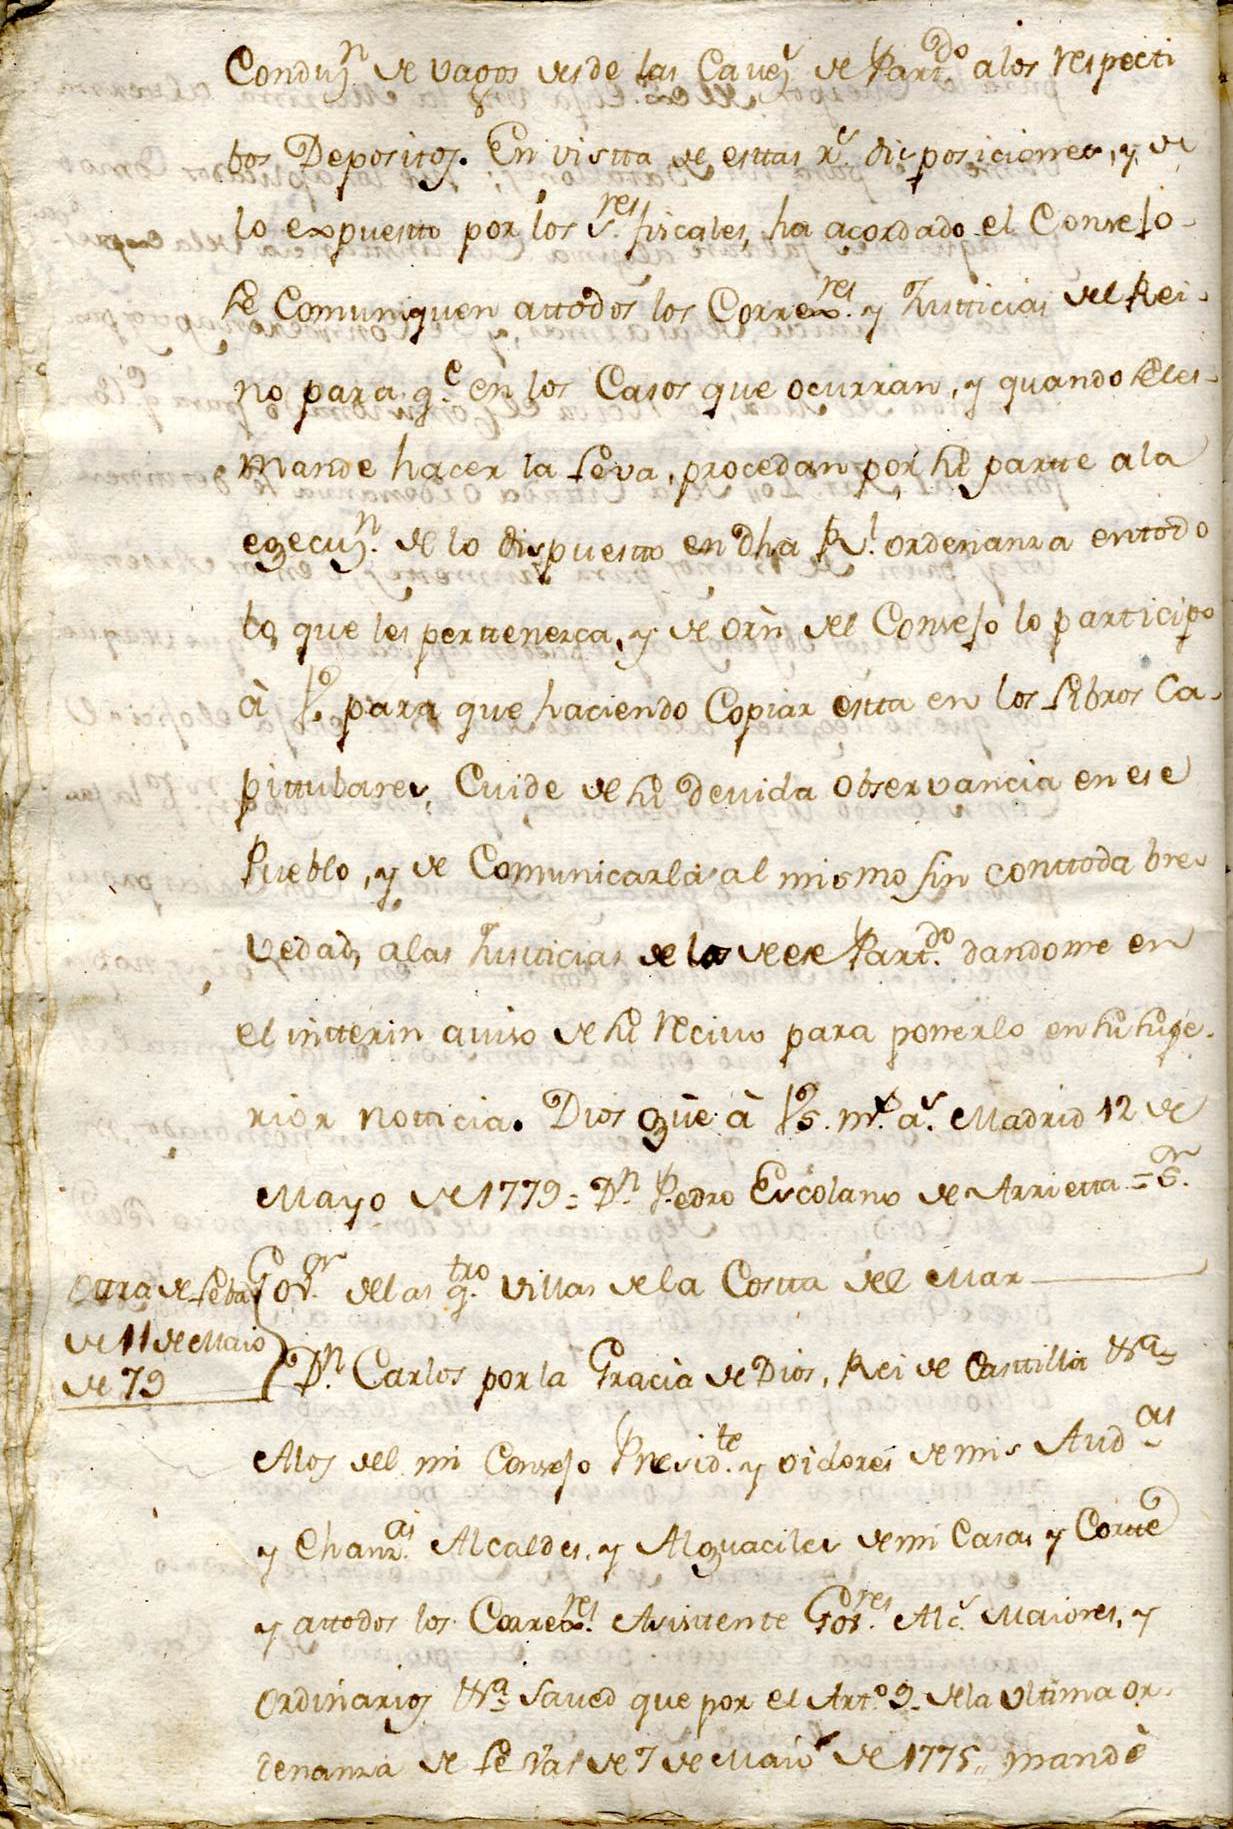 Conduzn de vagos desde las Cavezs de Partdo a los respecti
bos Depositos. En vistta de esttas rs disposiciones, y de
lo expuestto por los Sres fiscales, ha acordado el Consejo
se Comuniquen attodos los Correxres y Justticias del Rei-
no para qe en los Casos que ocurran, y quando se les
mande hacer la Leva, procedan por su partte a la
egecuzn de lo dispuestto en dha Rl ordenanza en todo
lo, que les perttenezca, y de orn del Consejo lo participo
à Vo para que haciendo Copiar estta en los Libros Ca-
pittulares, Cuide de su devida observancia en ese
Pueblo, y de Comunicarla al mismo fin conttoda bre-
vedad, a las Justticias de los de ese Partdo dandome en
el intterin aviso de su recivo para ponerlo en su supe-
rior notticia. Dios güe à V S. ms as Madrid 12 de
Mayo de 1779 = Dn Pedro Escolano de Arrietta = Sr
Govor de las qtro Villas de la Costta del Mar
Ottra de Leba
de 11 de Maio
de 79
Dn Carlos por la Gracia de Dios, Rei de Casttilla &a
Alos del mi Consejo Presidte y oidores de mis Audas
y Chanzas Alcaldes, y Alguaciles de mi Casa y Cortte
y attodos los Correxres Asisttente Govres Alcs Maiores, y
ordinarios &a Saved que por el Arto 9 de la Ultima or-
denanza de Levas de 7 de Maio de 1775,, mandè